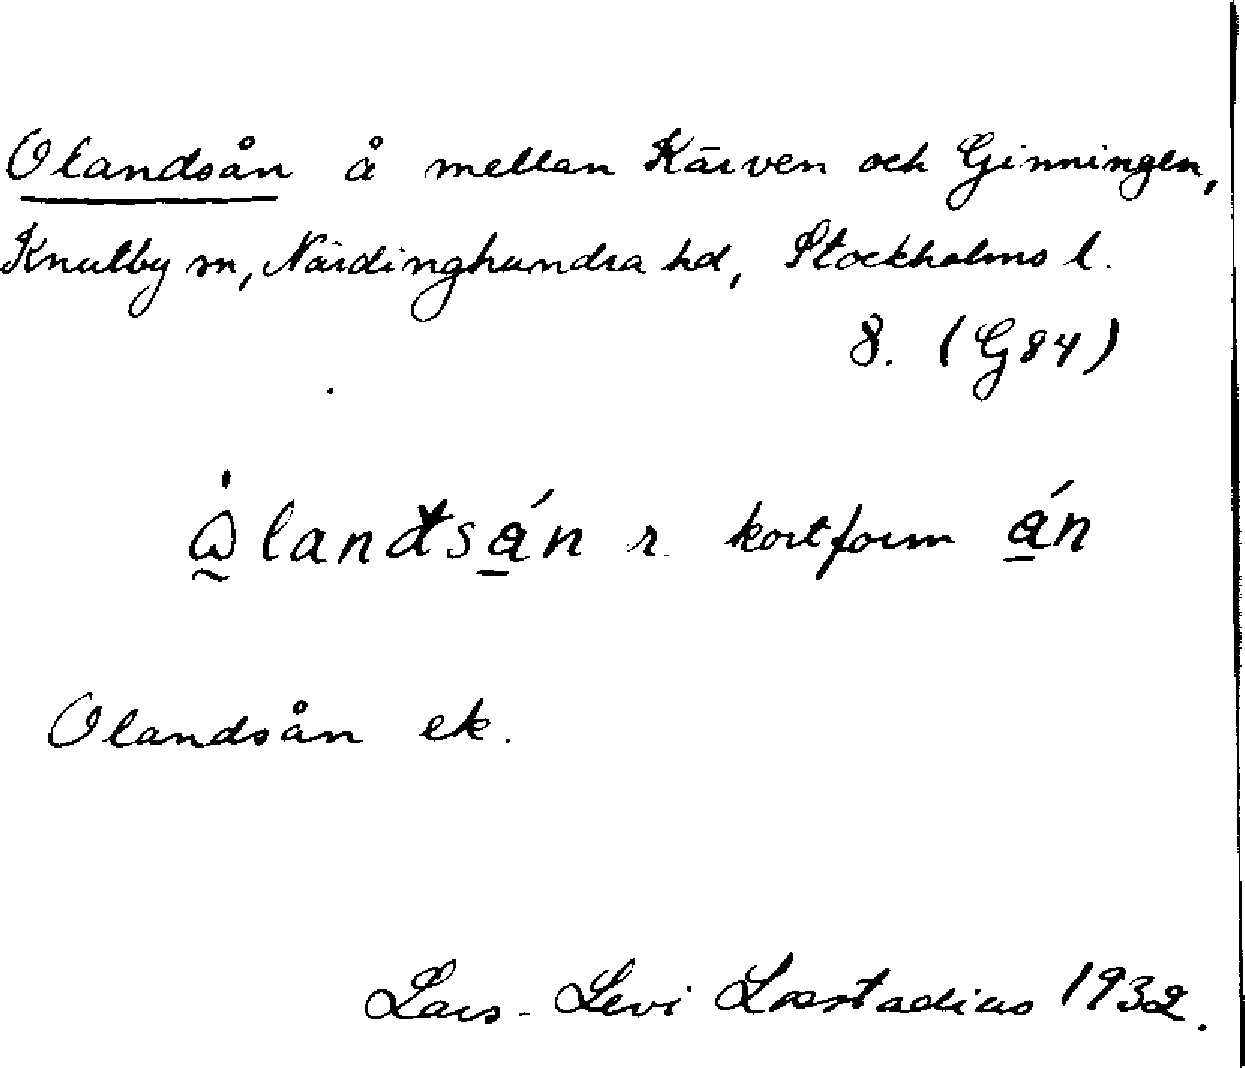 Olandsån å mellan Kärven och Ginningen,
Knutby sn, Närdinghundra hd, Stockholms l.
8. (G84)
landsán r. kortform á̲n
Olandsån ek.
Lars-Levi Læstadius 1932.